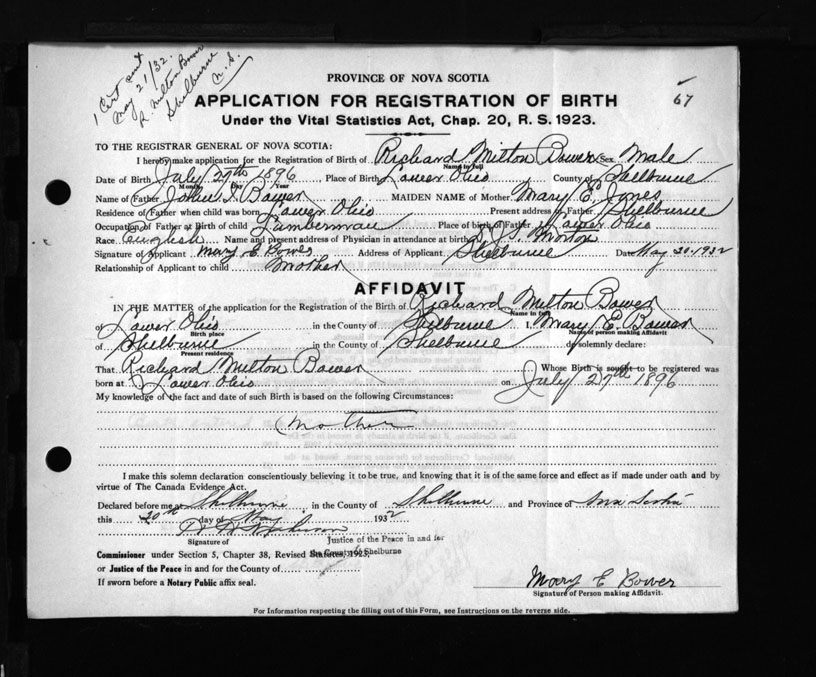 1 Cert sent
May 21/32
R. Milton Bower
Shelburne
N.S.
67
PROVINCE OF NOVA SCOTIA
APPLICATION FOR REGISTRATION OF BIRTH
Under the Vital Statistics Act, Chap. 20, R. S. 1923.
TO THE REGISTRAR GENERAL OF NOVA SCOTIA:
I hereby make application for the Registration of Birth of Richard Milton Bower Sex Male
Name in full
Date of Birth July 27th 1896 Place of Birth Lower Ohio County of Shelburne
Month Day Year
Name of Father John Bower MAIDEN NAME of Mother Mary E. Jones
Residence of Father when child was born Lower Ohio Present address of Father Shelburne
Occupation of Father at Birth of child Lumberman Place of birth of Father Lower Ohio
Race English Name and present address of Physician in attendance at birth Morton
Signature of Applicant Mary E Bower Address of Applicant Shelburne Date May 20-1932
Relationship of Applicant to child Mother
AFFIDAVIT
IN THE MATTER of the application for the Registration of Birth of Richard Milton Bower
Name in full
of Lower Ohio in the County of Shelburne I, Mary E. Bower
Birth place Name of person making Affidavit
of Shelburne in the County of Shelburne do solemnly declare:
Present residence
That Richard Milton Bower Whose Birth is sought to be registered was
born at Lower Ohio on July 27th 1896
My knowledge of the fact and date of such Birth is based on the following Circumstances:
Mother
I make this solemn declaration conscientiously believing it to be true, and knowing that it is of the same force and effect as if made under oath and by
virtue of The Canada Evidence Act.
Declared before me at Shelburne, in the County of Shelburne and Province of Nova Scotia
this 20th day of May 1932
Signature of Justice of the Peace in and for
Commissioner under Section 5, Chapter 38, Revised Statutes, 1923, the County of Shelburne
or Justice of the Peace in and for the County of
If sworn before a Notary Public affix seal.
Mary E Bower
Signature of Person making Affidavit.
For Information respecting the filling out of this Form, see Instructions on the reverse side.